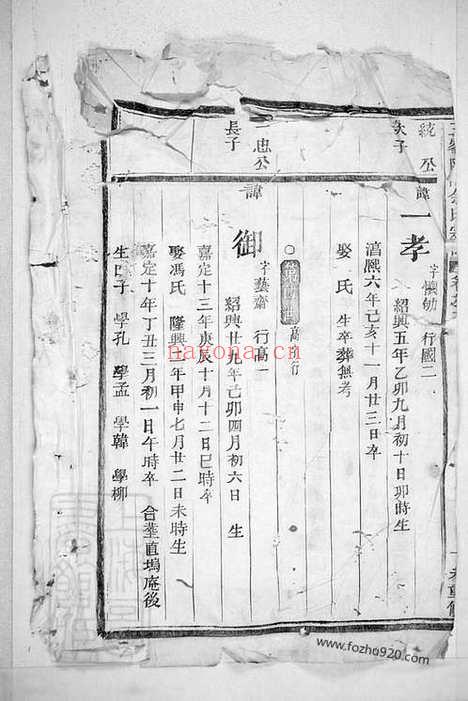 統公
次子
諱一孝 字懷劬 行國二
紹興五年乙卯九月初十日卯時生
淳熙六年己亥十一月廿三日卒
娶 氏 生卒葬無考
高行
一忠公
長子
諱御 字藝齋 行高一
紹興廿九年己卯四月初六日 生
嘉定十三年庚辰十月十二日巳時卒
娶馮氏 隆興二年甲申七月廿二日未時生
嘉定十年丁丑三月初一日午時卒 合塟直塢庵後
生四子 學孔 學孟 學韓 學柳
nayona.cn
www.fozhu920.com